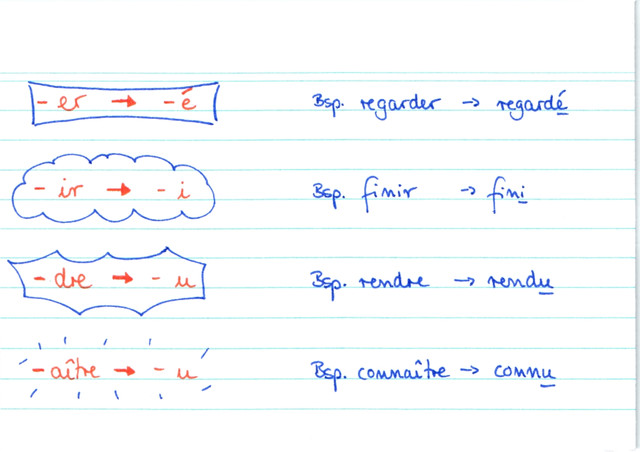 - er → - é Bsp. regarder → regardé
- ir → - i Bsp. finir → fini
- dre → - u Bsp. rendre → rendu
- aître → - u Bsp. connaître → connu